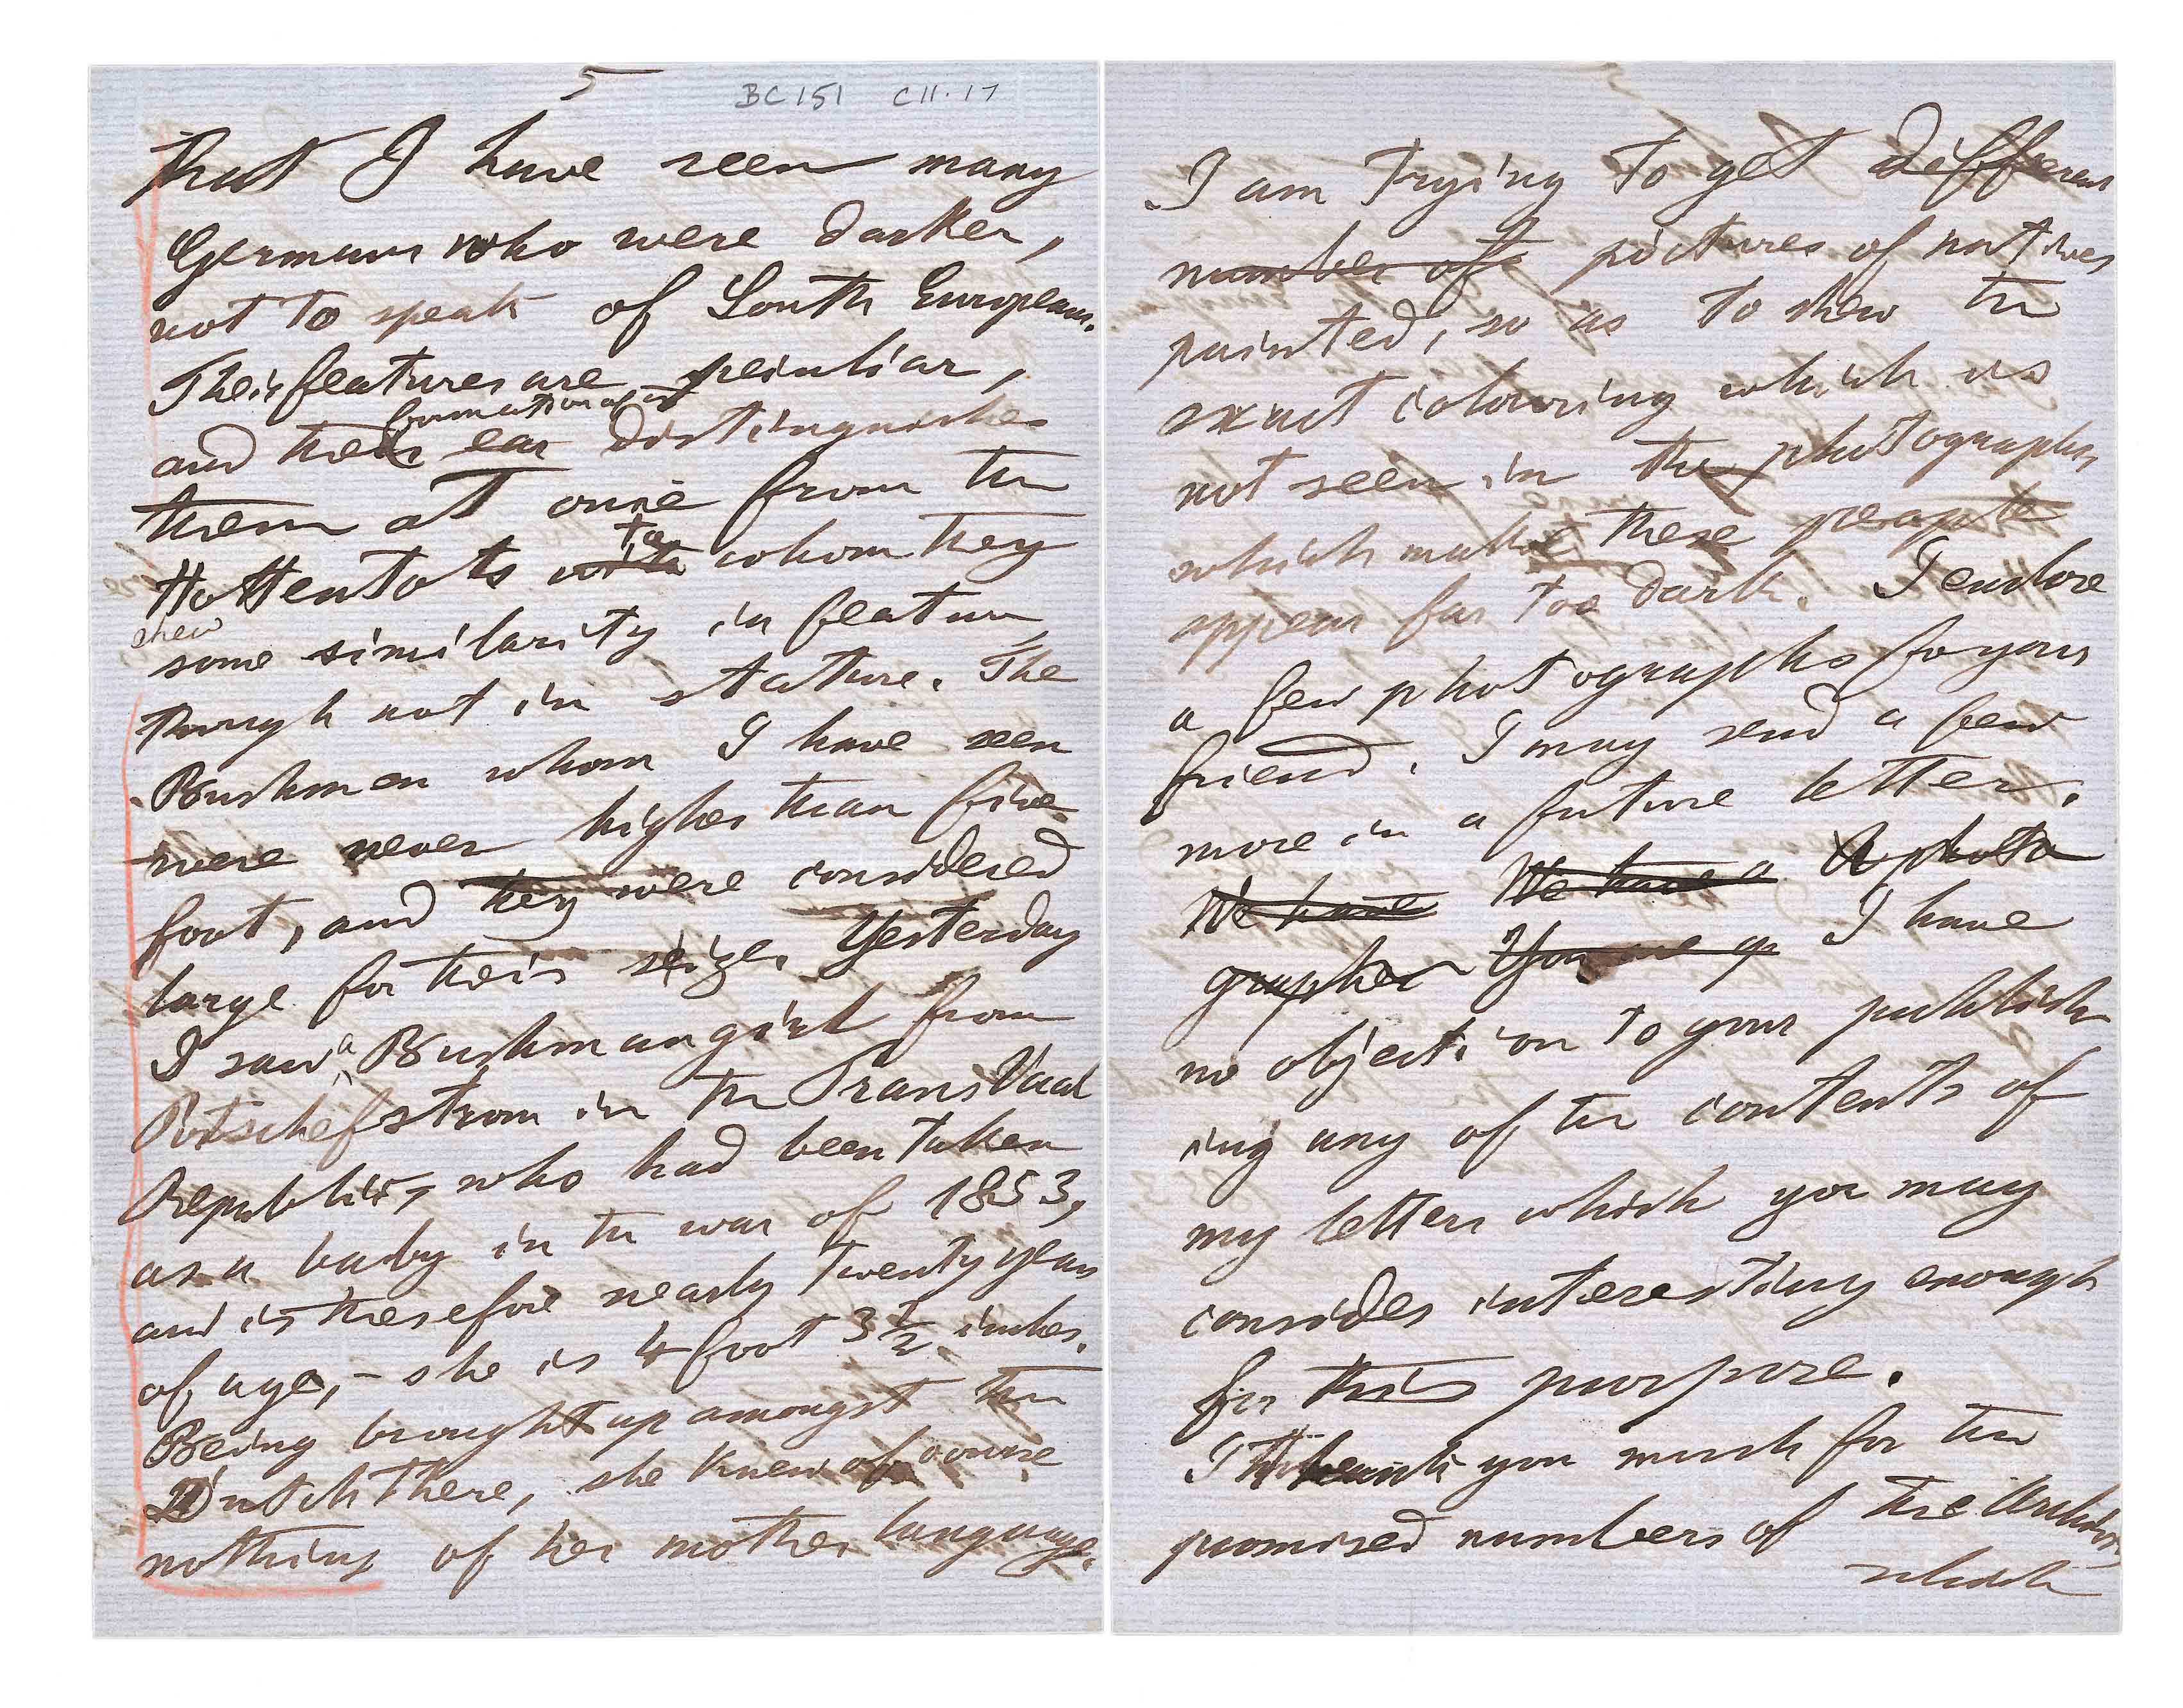 5
BC 151 C11.17
that I have seen many
Germans who were darker,
not to speak of South Europeans.
Their features are peculiar,
formation of
and their ear distinguishes
them at once from the
to
Hottentots with whom they
shew
some similarity in feature,
though not in stature. The
Bushmen whom I have seen
were never higher than five
foot, and they were considered
large for their seize. Yesterday
I saw a Bushmangirl from
Potschefstrom in the TransVaal
Republic, who had been taken
as a baby in the war of 1853,
and is therefore nearly twenty years
of age, – she is 4 foot 3 1/2 inches.
Being brought up amongst the
Dutch there, she knew of course
nothing of her mother language.
I am trying to get different
number of pictures of natives
painted, so as to shew the
exact colouring which is
not seen in the photographs,
which make these people
appear far too dark. I enclose
a few photographs for your
friend. I may send a few
more in a future letter.
We have We have a A photo
grapher You I have
no objection to your publish
ing any of the contents of
my letters which you may
consider interesting enough
for this purpose.
I thank you much for the
promised numbers of the
which